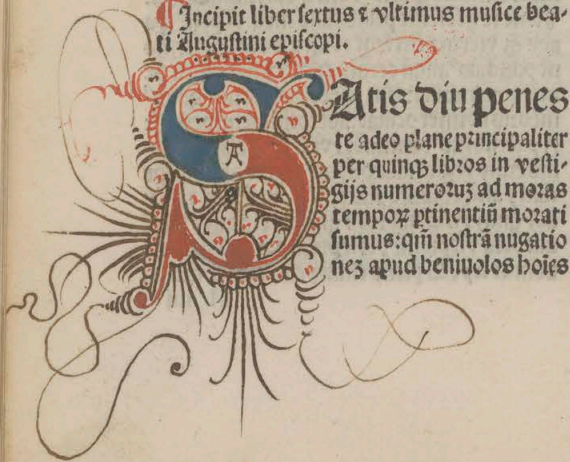 ¶ Incipit liber sextus ⁊ vltimus musice bea-
ti Augustini episcopi.
SAtis diu penes
te adeo plane principaliter
per quinqꝫ libros in vesti-
gijs numeroruꝫ ad moras
tempoꝝ ꝑtinentiū morati
sumus: qm̄ nostrā nugatio
neꝫ apud beniuolos hoīes